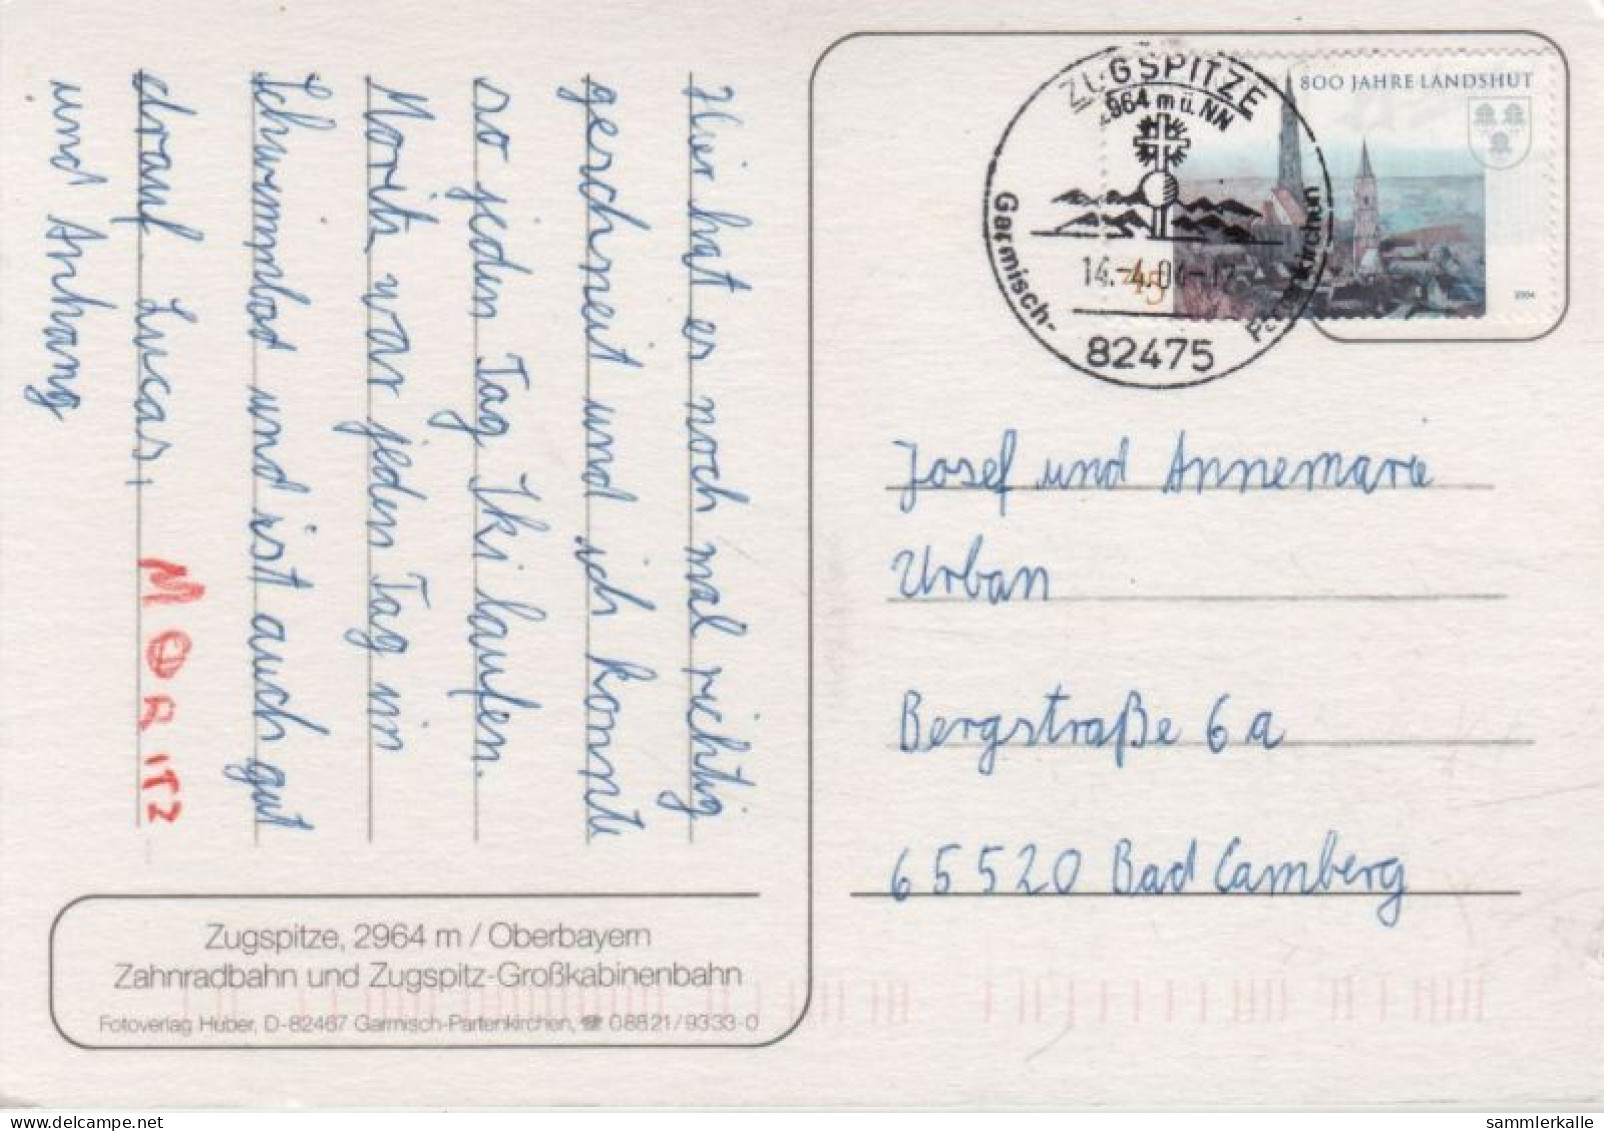 Hier hat es noch mal richtig
geschneit und ich konnte
so jeden Tag Ski laufen.
Moritz war jeden Tag im
Schwimmbad und ist auch gut
drauf. Lucas,
MORITZ
und Anhang
Zugspitze, 2964 m / Oberbayern
Zahnradbahn und Zugspitz-Großkabinenbahn
Fotoverlag Huber, D-82467 Garmisch-Partenkirchen, ☎ 08821/9333-0
ZUGSPITZE
2964 m ü. NN
Garmisch-Partenkirchen
14.-4.04-12
82475
800 JAHRE LANDSHUT
45
2004
Josef und Annemarie
Urban
Bergstraße 6a
65520 Bad Camberg
sammlerkalle